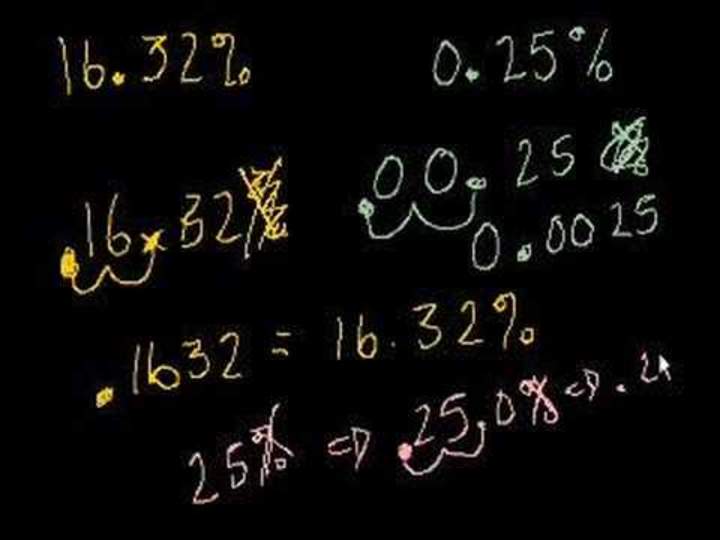 16.32%
0.25%
16.32%
00.25%
0.0025
.1632 = 16.32%
25% => 25.0% => .2